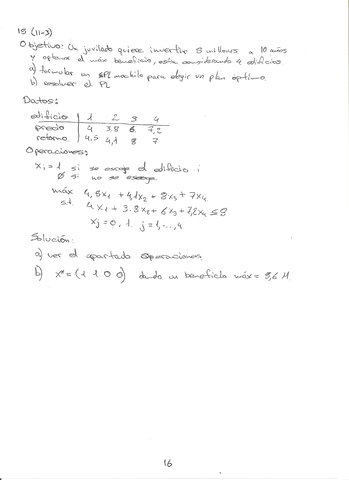 15 (11-3)
Objetivo: Un jubilado quiere invertir 8 millones a 10 años
y obtener el máx beneficio, esta considerando 4 edificios.
a) formular un PL mochila para elegir un plan óptimo.
b) resolver el PL
Datos:
edificio 1 2 3 4
precio 4 3,8 6 7,2
retorno 4.5 4,1 8 7
Operaciones:
xi = 1 si se escoge el edificio i
Ø si no se escoge.
máx 4,5x1 + 4,1x2 + 8x3 + 7x4
s.t. 4x1 + 3.8x2 + 6x3 + 7,2x4 ≤ 8
xj = 0, 1. j = 1, ..., 4
Solución:
a) ver el apartado Operaciones.
b) x* = (1 1 0 0) dando un beneficio máx = 8,6 M.
16